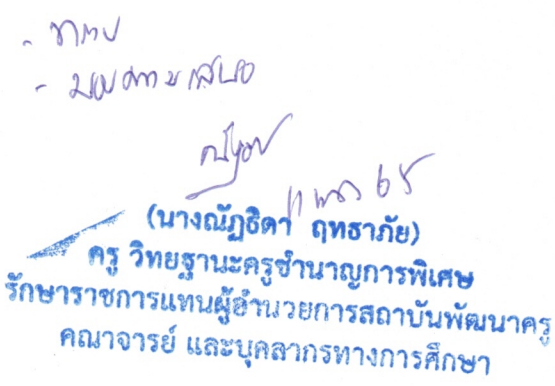 - ทราบ
- มอบตามเสนอ
65
(นางณัฏธิดา ฤทธาภัย)
ครู วิทยฐานะครูชำนาญการพิเศษ
รักษาราชการแทนผู้อำนวยการสถาบันพัฒนาครู
คณาจารย์ และบุคลากรทางการศึกษา